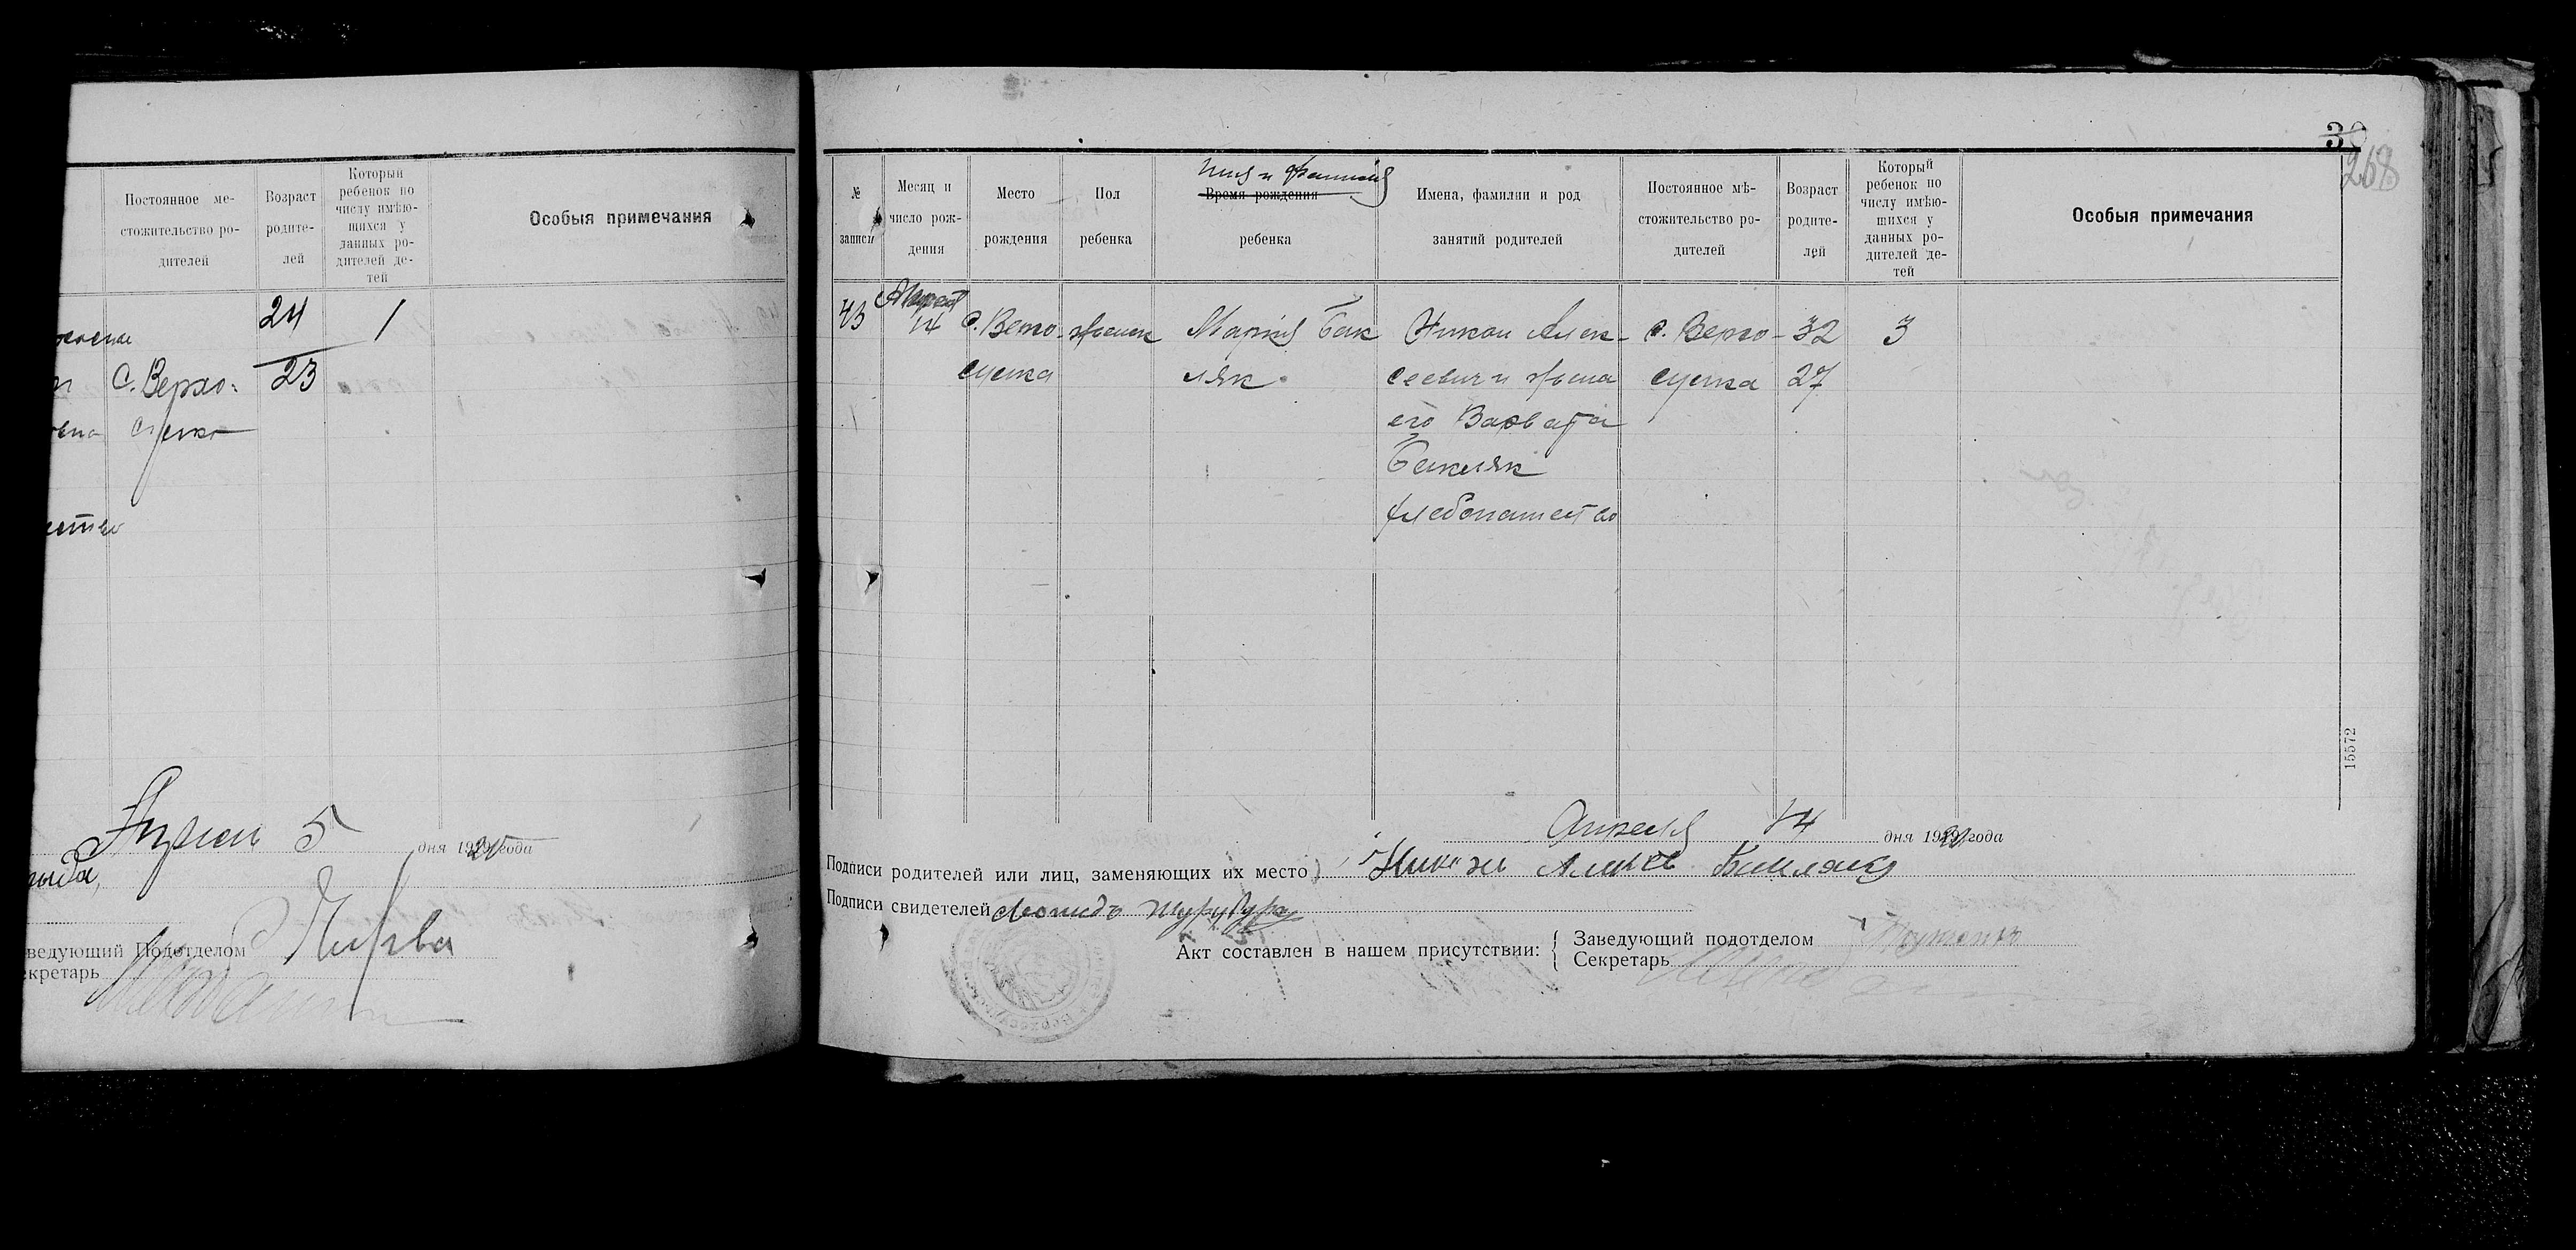 Постоянное ме-
стожительство ро-
дителей
Возраст
родите-
лей
Который
ребенок по
числу имѣю-
щихся у
данных ро-
дителей де-
тей
Особыя примечания
24
1
С. Верхо-
23
суенка
Апрель 5 дня 1920 года
Заведующий Подотделом
Секретарь
268
№
записи
Месяц и
число рож-
дения
Место
рождения
Пол
ребенка
Имя и фамилия
Время рождения
ребенка
Имена, фамилии и род
занятий родителей
Постоянное мѣ-
стожительство ро-
дителей
Возраст
родите-
лей
Который
ребенок по
числу имѣю-
щихся у
данных ро-
дителей де-
тей
Особыя примечания
43
14
с. Верхо-
суенка
женск
Мария Бак
ляк
Никон Алек-
сеевич и жена
его Варвара
Бакляк
хлебопашество
с. Верхо-
суенка
32
27
3
15572
Апреля 14 дня 1920 года
Подписи родителей или лиц, заменяющих их место
Подписи свидетелей Леонидъ
Акт составлен в нашем присутствии:
Заведующий подотделом
Секретарь